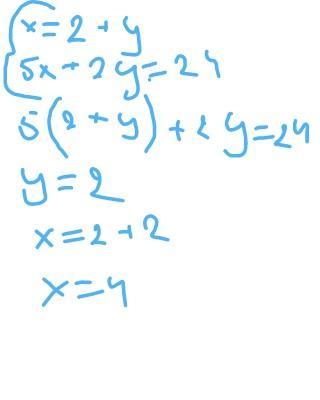 x=2+y
5x+2y=24
5(2+y)+2y=24
y=2
x=2+2
x=4